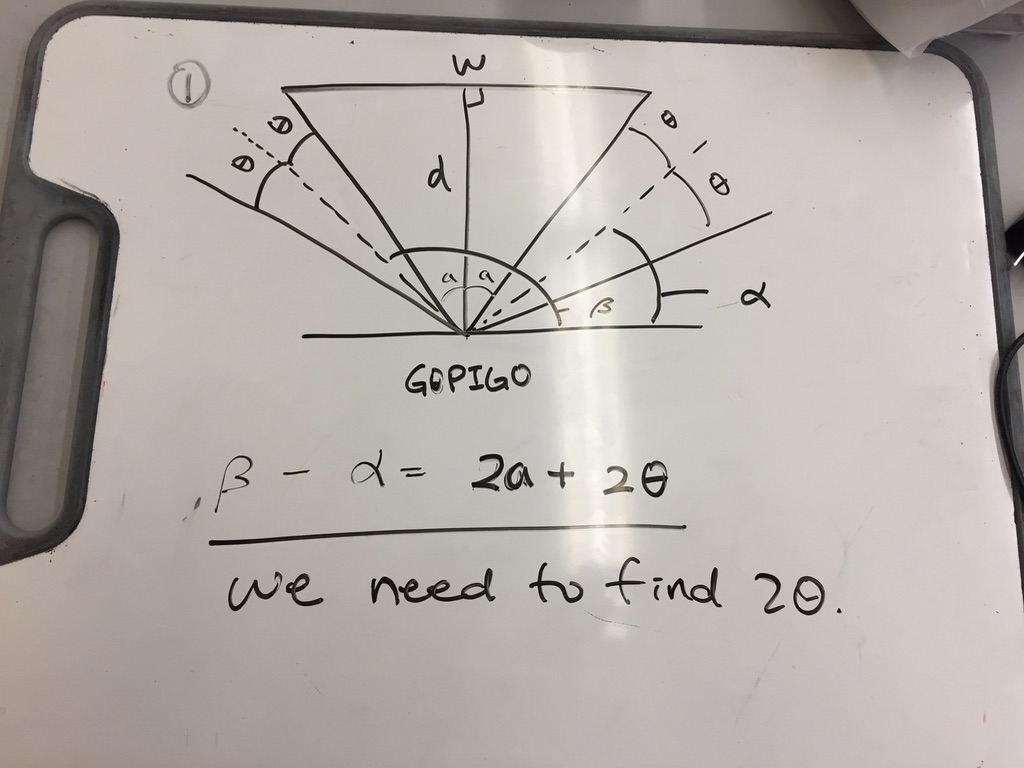 ①
W
θ
θ
θ
θ
d
a a
β
α
GOPIGO
β - α = 2a + 2θ
we need to find 2θ.